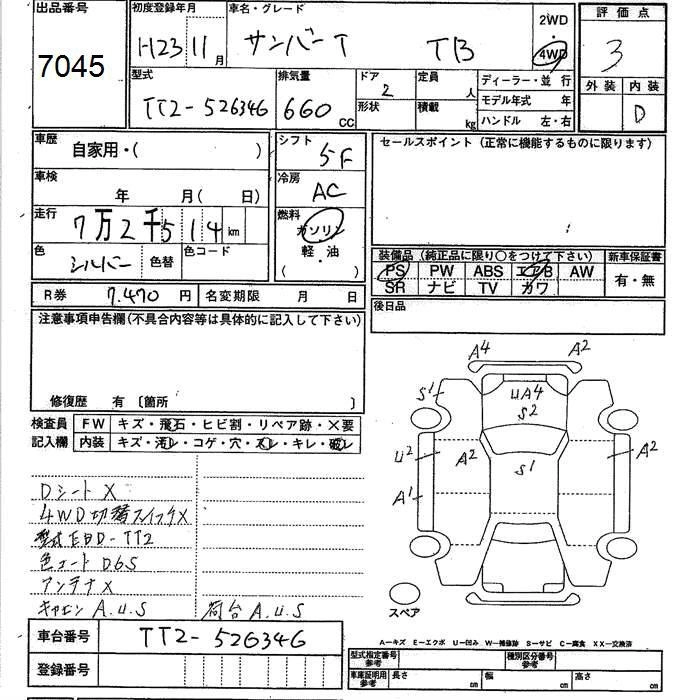 出品番号
7045
初度登録年月
H23 11月
車名・グレード
サンバーT TB
2WD
・
4WD
評価点
3
外装 内装
D
型式
TT2-526346
排気量
660 CC
ドア
2
形状
定員
人
積載
kg
ディーラー・並行
モデル年式 年
ハンドル 左・右
車歴
自家用・( )
車検
年 月( 日)
走行
7万2千514km
色
シルバー
色替
色コード
シフト
5F
冷房
AC
燃料
ガソリン
軽・油
( )
セールスポイント(正常に機能するものに限ります)
装備品(純正品に限り○をつけて下さい)
PS PW ABS エアB AW
SR ナビ TV カワ
新車保証書
有・無
R券 7.470円
名変期限 月 日
後日品
注意事項申告欄(不具合内容等は具体的に記入して下さい)
修復歴 有〔箇所 〕
検査員
記入欄
FW キズ・飛石・ヒビ割・リペア跡・×要
内装 キズ・汚レ・コゲ・穴・スレ・キレ・破レ
Dシート X
4WD切替スイッチX
型式EBD-TT2
色コード D6S
アンテナ X
キャビン A.U.S 荷台 A.U.S
A4 A2
S1
UA4
S2
U2
A2
S1
A2
A1
スペア
車台番号 TT2-526346
登録番号
A-キズ E-エクボ U-凹み W-補修跡 S-サビ C-腐食 XX-交換済
型式指定番号
参考
種別区分番号
参考
車庫証明用
参考
長さ cm
幅 cm
高さ cm